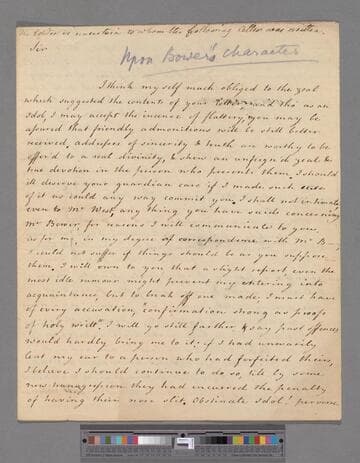 The Editor is uncertain to whom the following Letter was written.
Sir
Upon Bower's Character
I think myself much obliged to the zeal
which suggested the contents of your Letter, and tho' as an
Idol I may accept the incense of flattery, you may be
assured that friendly admonitions will be still better
received, addresses of sincerity & truth are worthy to be
offer'd to a real divinity, & shew an unfeign'd zeal &
true devotion in the person who presents them. I should
ill deserve your guardian care if I made such use
of it as could any way commit you. I shall not intimate
even to Mr West any thing you have said concerning
Mr Bower, for reasons I will communicate to you.
as for my in my degree of correspondence with Mr B—
I could not suffer if things should be as you suppose
them. I will own to you that a slight report, even the
most idle rumour might prevent my entering into
acquaintance, but to break off one made, I must have
of every accusation, confirmation strong as proofs
of holy writ. I will go still farther & say, past offences
would hardly bring me to it; if I had unwarily
lent my ear to a person who had forfeited theirs,
I believe I should continue to do so, till by some
new transgression they had incurred the penalty
of having their nose slit. Obstinate Idol! perverse